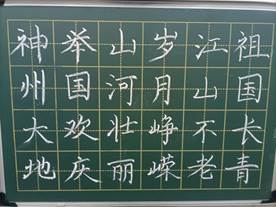 神州大地
举国欢庆
山河壮丽
岁月峥嵘
江山不老
祖国长青